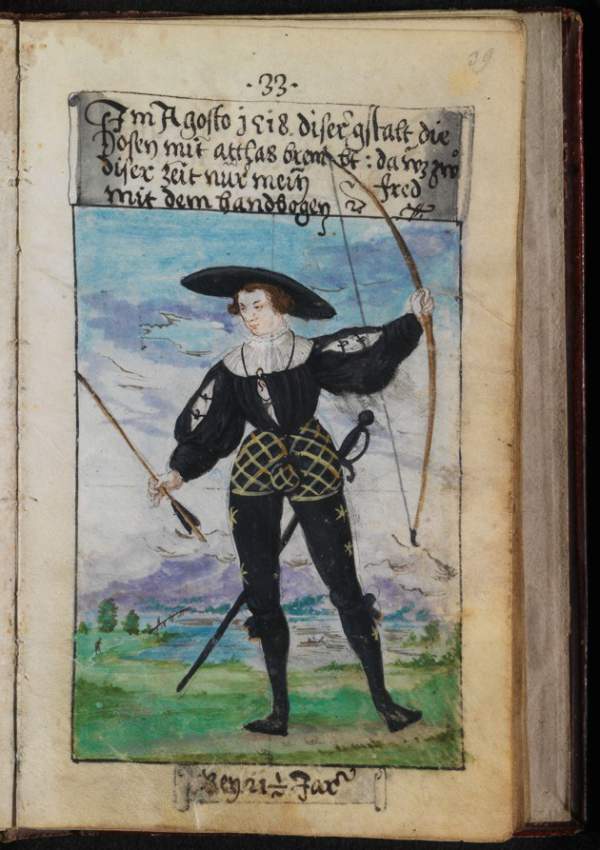 ·33·
39
Im Agosto 1518. diser gstalt die
hosen mit atthas brembt: da wz zů
diser zeit nur mein fred
mit dem handbogen
Bey 21½ Jar